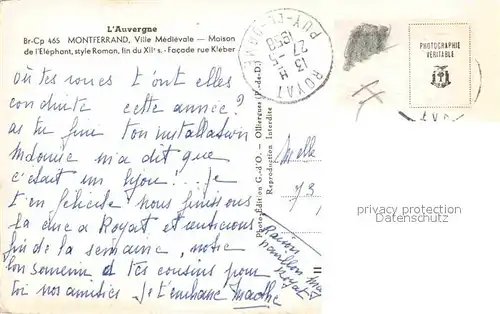 L'Auvergne
Br-Cp 465 MONTFERRAND, Ville Médiévale — Maison
de l'Eléphant, style Roman, fin du XIIe s. - Façade rue Kléber
où tes roues t'ont elles
conduite cette année?
as tu fini ton installation
m'a dit que
c'était un bijou! .. Je
t'en félicite nous finissons
la cure a Royat et
fin de la semaine, notre
bon souvenir à tes cousins pour
toi nos amitiés Je t'embrasse
ROYAT
PUY-DE-DOME
15 H
27 -5
1950
Photo-Edition G.-d'O. - Ollierques (P.-de-D.)
Reproduction Interdite
PHOTOGRAPHIE
VERITABLE
Melle
73
pavillon
Royat
privacy protection
Datenschutz